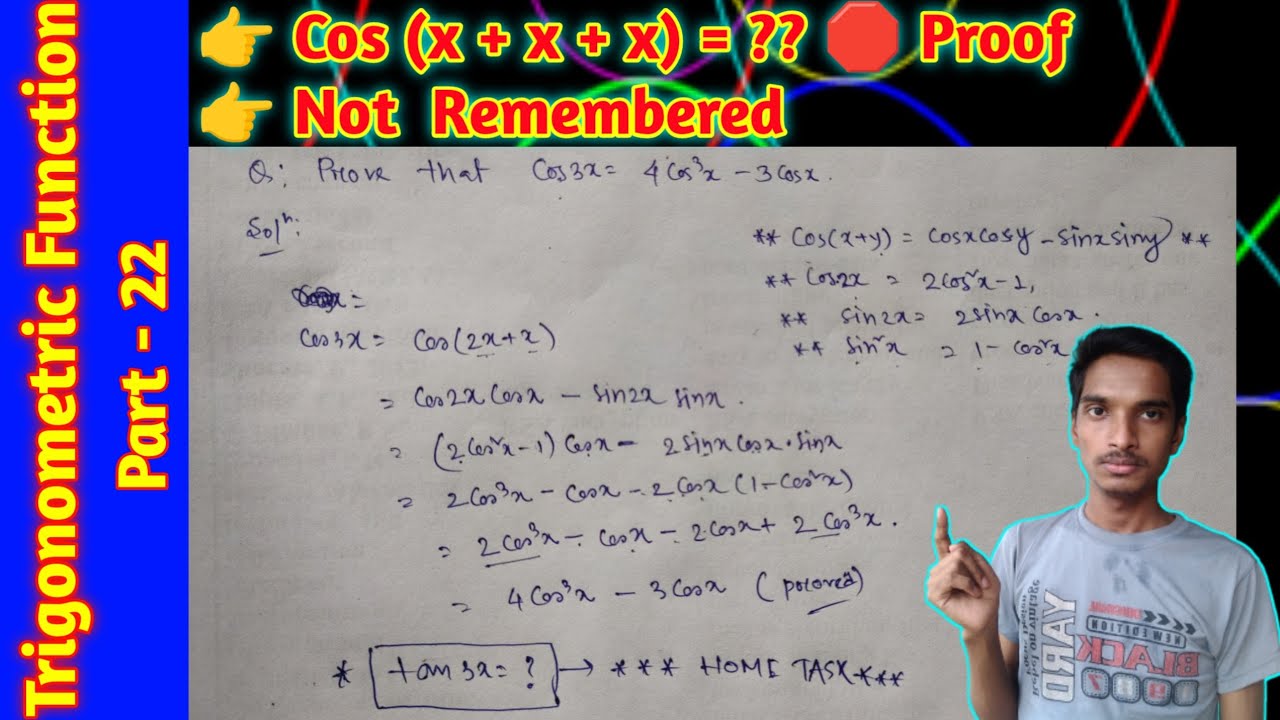 Trigonometric Function
Part - 22
👉 Cos (x + x + x) = ?? 🛑 Proof
👉 Not Remembered
Q: Prove that Cos3x = 4Cos³x - 3Cosx.
Solⁿ:
** Cos(x+y) = CosxCosy - Sinxsiny **
** Cos2x = 2Cos²x-1,
** Sin2x = 2sinx Cosx.
** Sin²x = 1- Cos²x
Cos3x = Cos(2x+x)
= Cos2x Cosx - sin2x sinx.
= (2Cos²x-1) Cosx - 2sinx Cosx·sinx
= 2Cos³x - Cosx - 2Cosx (1-Cos²x)
= 2Cos³x - Cosx - 2Cosx + 2Cos³x.
= 4Cos³x - 3Cosx (poroved)
* tan3x = ? → *** HOME TASK***
YARD
NEW EDITION
BLACK